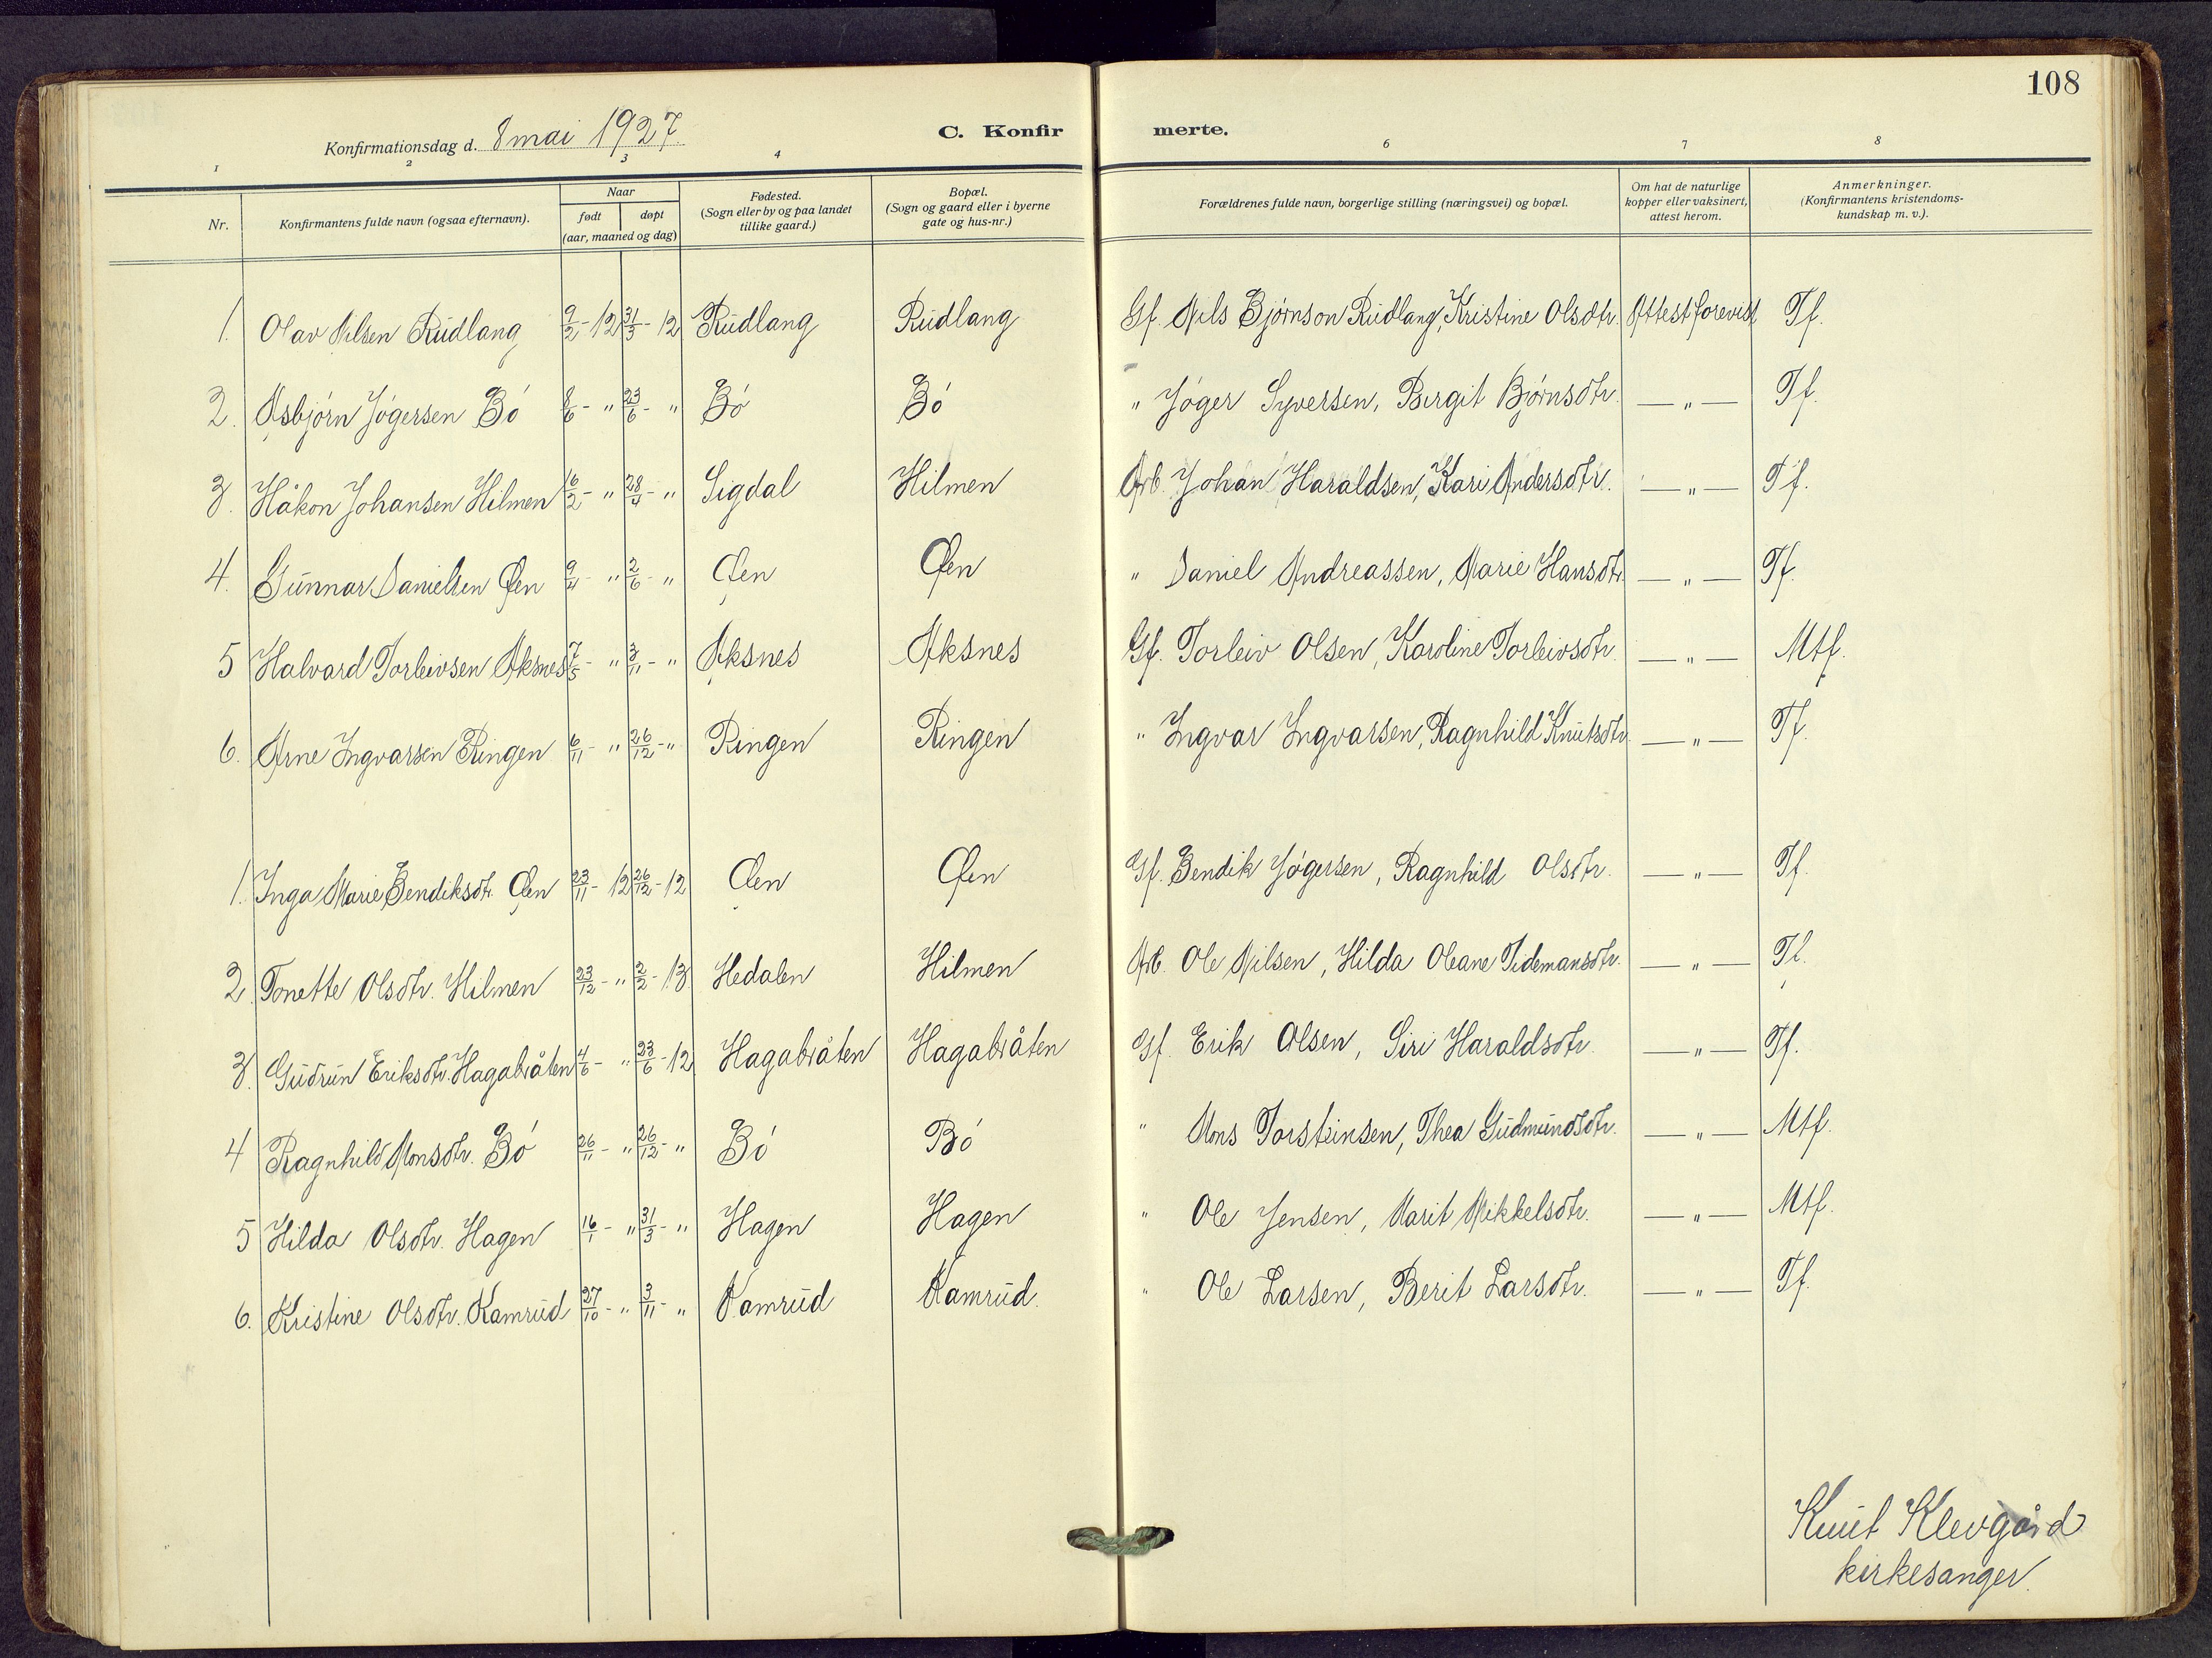 108
Konfirmationsdag d. 8 mai 1927
C. Konfirmerte.
1 2 3 4 6 7 8
Nr. Konfirmantens fulde navn (ogsaa efternavn). Naar født døpt (aar, maaned og dag) Fødested. (Sogn eller by og paa landet tillike gaard.) Bopæl. (Sogn og gaard eller i byerne gate og hus-nr.) Forældrenes fulde navn, borgerlige stilling (næringsvei) og bopæl. Om hat de naturlige kopper eller vaksinert, attest herom. Anmerkninger. (Konfirmantens kristendomskundskap m. v.).
1. Olav Nilsen Rudlang 9/2 - 12 31/3 - 12 Rudlang Rudlang Gf. Nils Bjørnson Rudlang, Kristine Olsdtr. Attest forevist Tf.
2. Asbjørn Jøgersen Bø 8/6 - " 23/6 - " Bø Bø " Jøger Syversen, Birgit Bjørnsdtr. — " — Tf.
3. Håkon Johansen Hilmen 16/2 - " 28/4 - " Sigdal Hilmen Arb. Johan Haraldsen, Kari Andersdtr. — " — Tf.
4. Gunnar Danielsen Øen 9/4 - " 2/6 - " Øen Øen " Daniel Andreassen, Marie Hansdtr. — " — Tf.
5 Halvard Torleivsen Aksnes 7/5 - " 3/11 - " Aksnes Aksnes Gf. Torleiv Olsen, Karoline Torleivsdtr. — " — Mtf.
6. Arne Ingvarsen Ringen 6/11 - " 26/12 - " Ringen Ringen " Ingvar Ingvarsen, Ragnhild Knutsdtr. — " — Tf.
1. Inga Marie Bendiksdtr. Øen 23/11 - 12 26/12 - 12 Øen Øen Gf. Bendik Jøgersen, Ragnhild Olsdtr. — " — Tf.
2. Tonette Olsdtr. Hilmen 23/12 - " 2/2 - 13 Hedalen Hilmen Arb. Ole Nilsen, Hilda Oleane Tidemansdtr. — " — Tf.
3. Gudrun Eriksdtr. Hagabråten 4/6 - " 23/6 - 12 Hagabråten Hagabråten Gf. Erik Olsen, Siri Haraldsdtr. — " — Tf.
4 Ragnhild Monsdtr. Bø 26/11 - " 26/12 - " Bø Bø " Mons Torsteinsen, Thea Gudmundsdtr. — " — Mtf.
5 Hilda Olsdtr. Hagen 16/1 - " 31/3 - " Hagen Hagen " Ole Jensen, Marit Mikkelsdtr. — " — Mtf.
6. Kristine Olsdtr. Kamrud 27/10 - " 3/11 - " Kamrud Kamrud. " Ole Larsen, Berit Larsdtr. — " — Tf.
Knut Klevgård
kirkesanger.